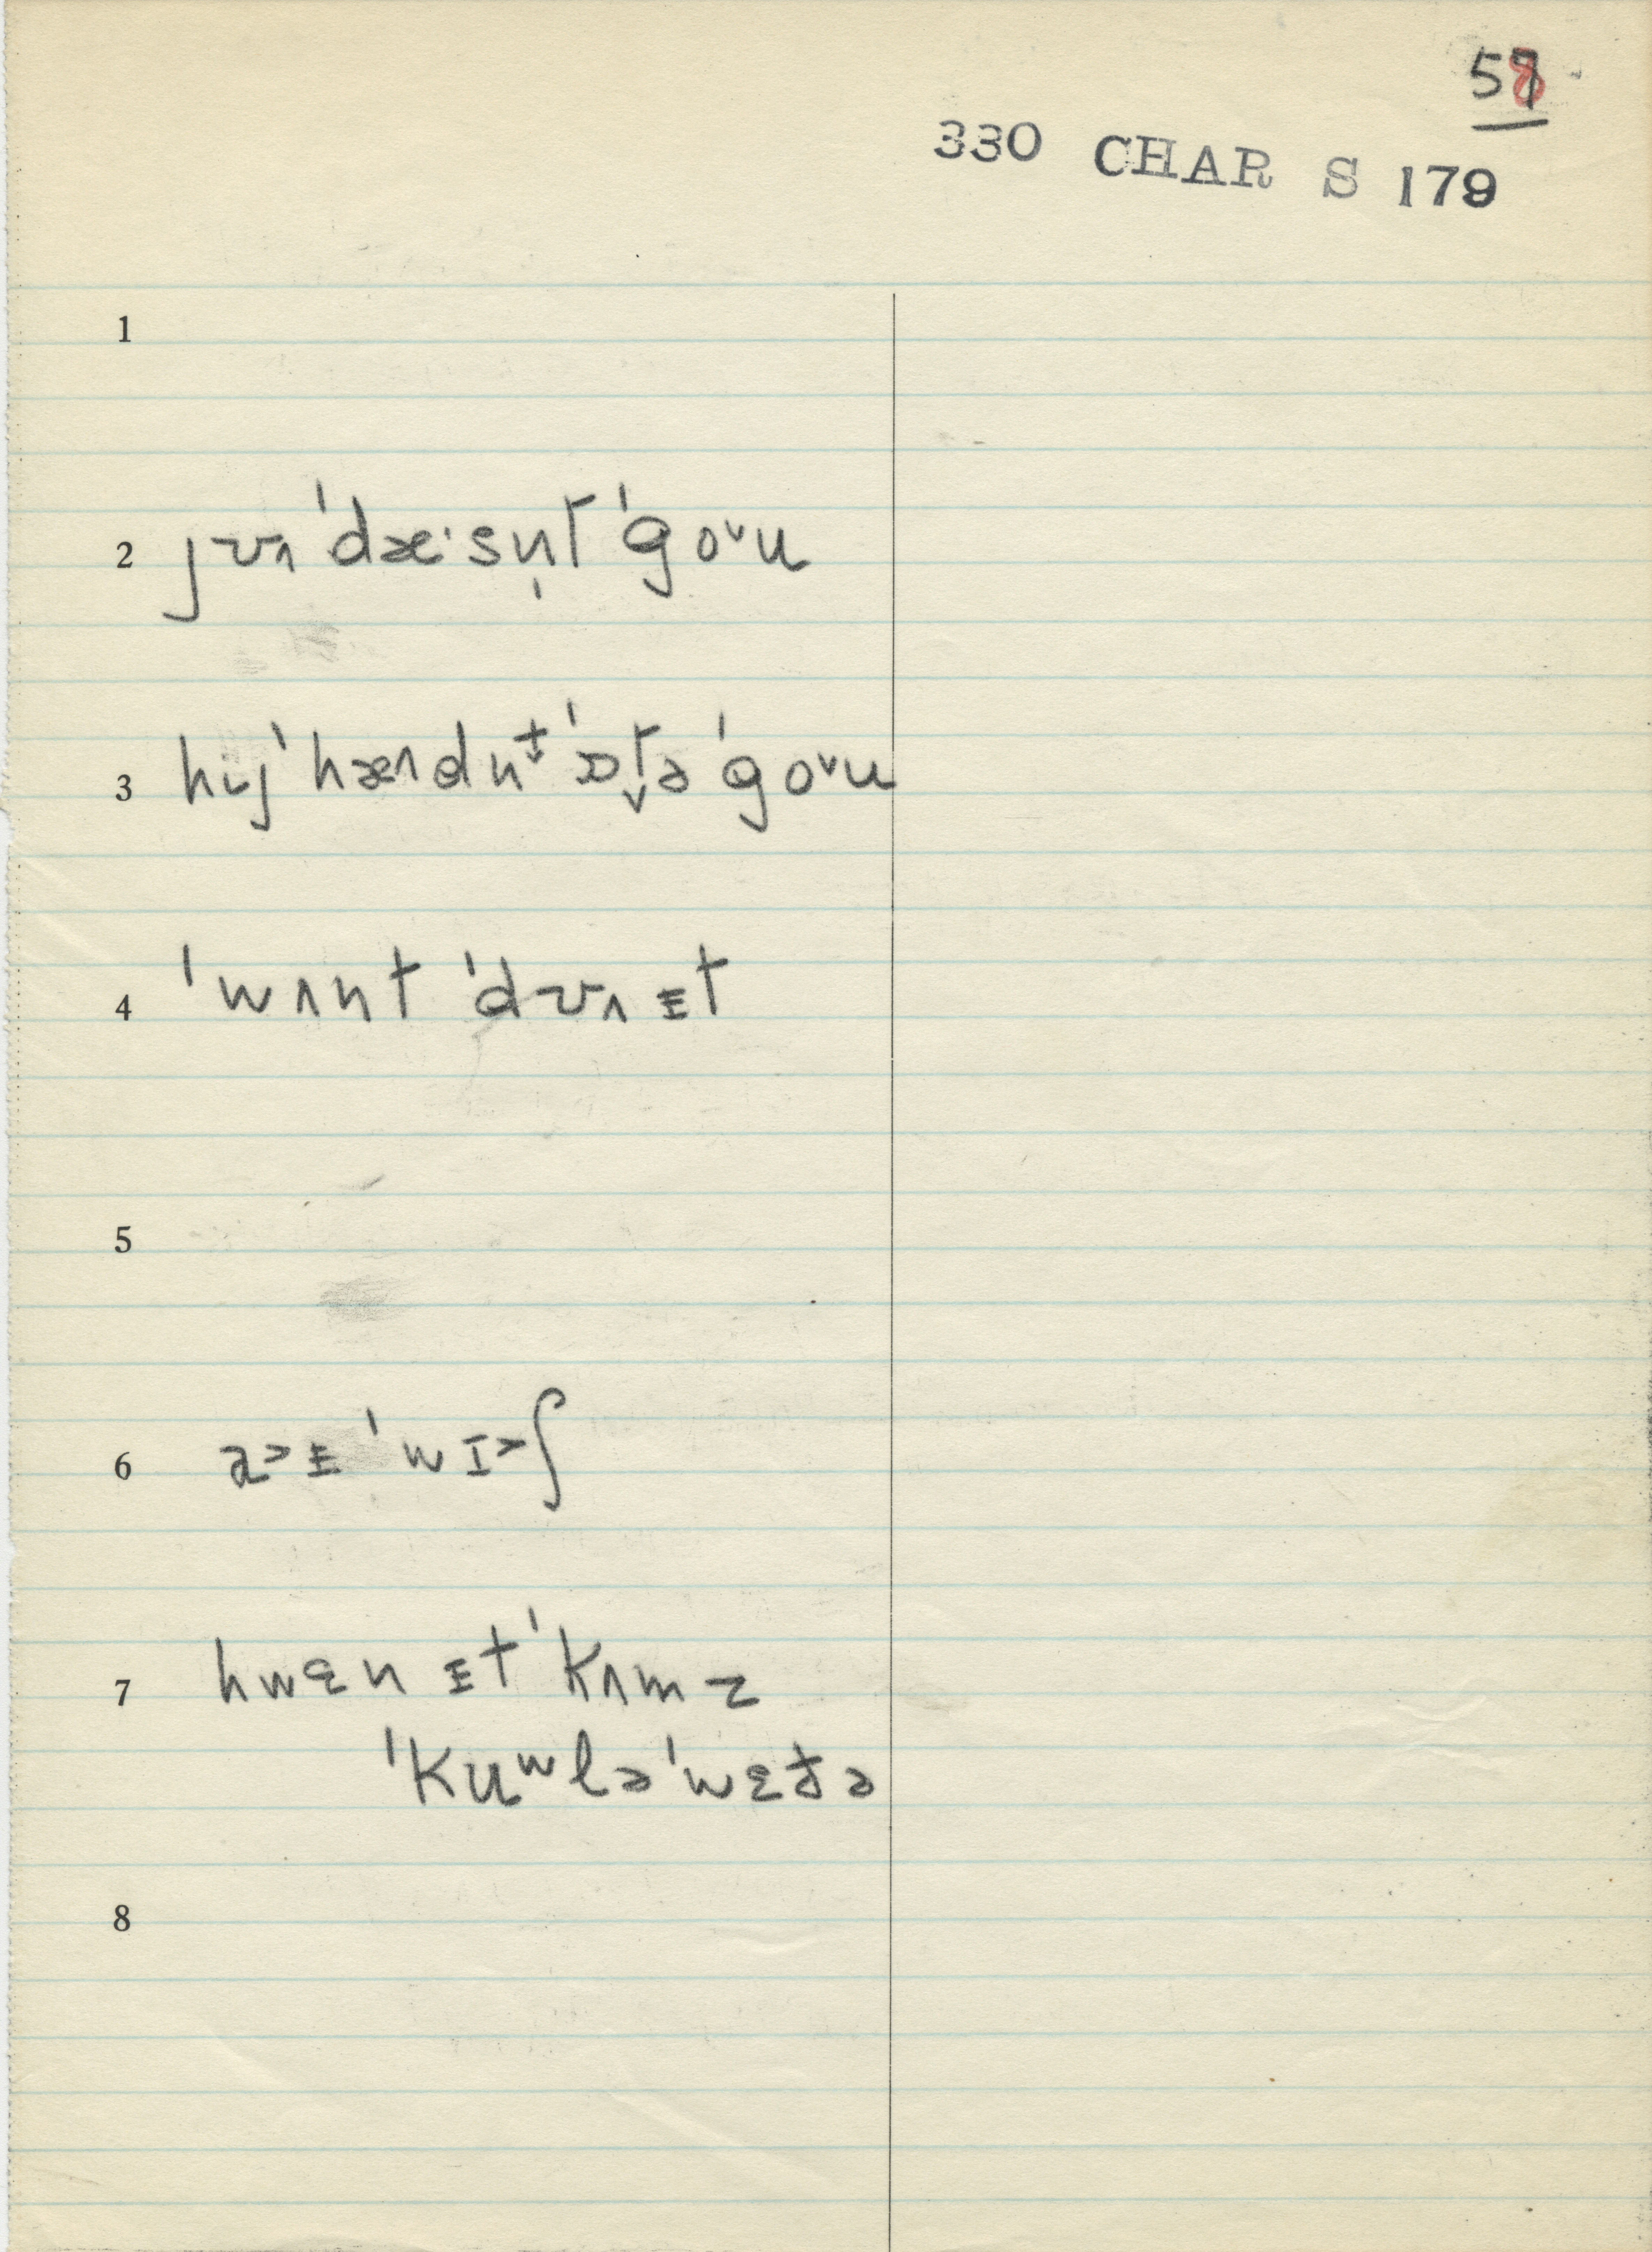 58
330 CHAR S 179
1
2 jʊʌ ˈdæ·sn̩t ˈgoᵛu
3 hɪj ˈhædn̩t ˈɒt̬ə ˈgoᵛu
4 ˈwʌnt ˈdʊʌ ᵻt
5
6 a˃ᵻ ˈwɪ˃ʃ
7 hwɛn ᵻt ˈkʌmz
ˈkuʷlə ˈwɛðə
8